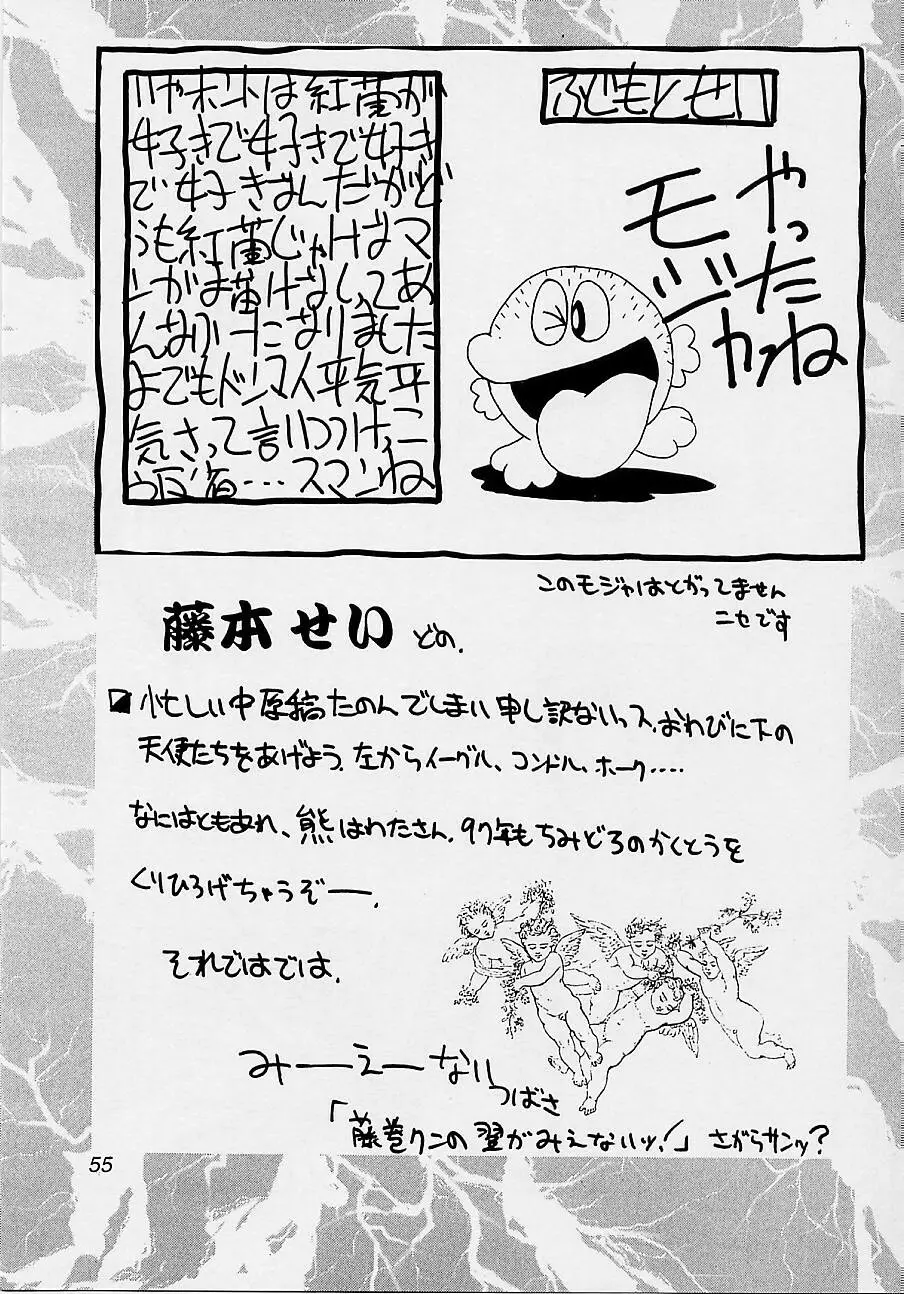 ふじもとせい
いやホントは紅蘭が
好きで好きで好き
で好きなんだがど
うも紅蘭じゃげばマ
ンがお蘭げなしてあ
んなかったなりました
よでもドンマイ平気平
気さって言いつつけっこ
う反省…スマンね
やったね
モジャ
このモジャはとがってません
ニセです
藤本せい どの.
忙しい中原稿たのんでしまい申し訳ないっス.おわびに下の
天使たちをあげよう.左からイーグル、コンドル、ホーク・・・・
なにはともあれ、熊はわたさん.97年もちみどろのかくとうを
くりひろげちゃうぞ――.
それではでは.
みーえーない
つばさ
「藤巻クンの翼がみえないッ!」さがらサンッ?
55